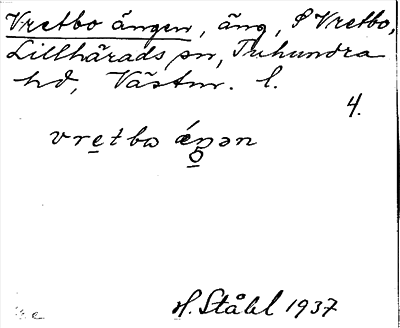 Vretbo ängen, äng, S Vretbo,
Lillhärads sn, Tuhundra
hd, Västm. l.
4.
vretbo
H. Ståhl 1937